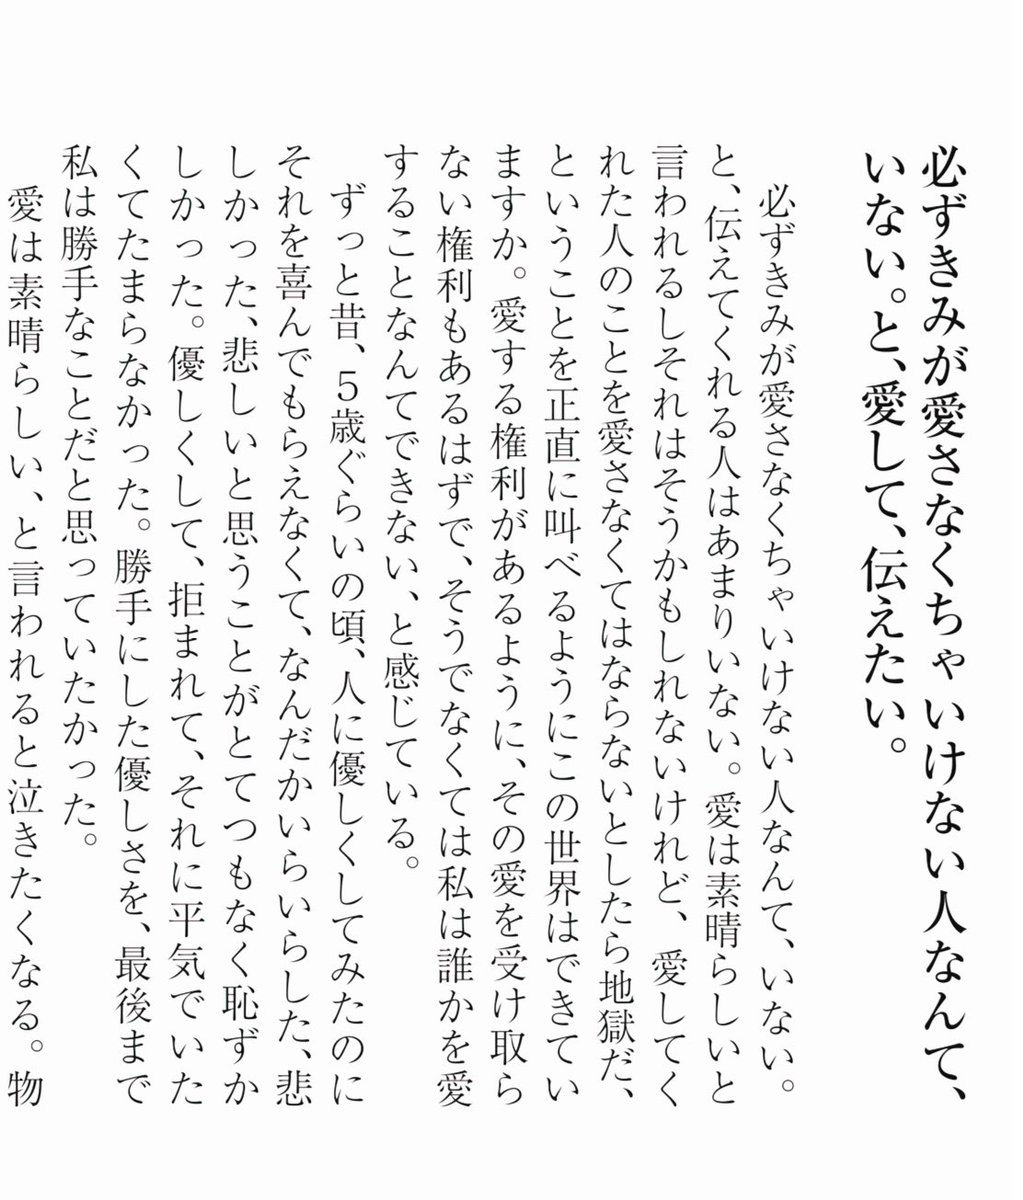 必ずきみが愛さなくちゃいけない人なんて、
いない。と、愛して、伝えたい。
必ずきみが愛さなくちゃいけない人なんて、いない。
と、伝えてくれる人はあまりいない。愛は素晴らしいと
言われるしそれはそうかもしれないけれど、愛してく
れた人のことを愛さなくてはならないとしたら地獄だ、
ということを正直に叫べるようにこの世界はできてい
ますか。愛する権利があるように、その愛を受け取ら
ない権利もあるはずで、そうでなくては私は誰かを愛
することなんてできない、と感じている。
ずっと昔、5歳ぐらいの頃、人に優しくしてみたのに
それを喜んでもらえなくて、なんだかいらいらした、悲
しかった、悲しいと思うことがとてつもなく恥ずか
しかった。優しくして、拒まれて、それに平気でいた
くてたまらなかった。勝手にした優しさを、最後まで
私は勝手なことだと思っていたかった。
愛は素晴らしい、と言われると泣きたくなる。物